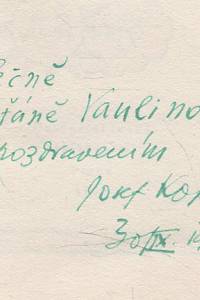 ečně
táně Vaulino
pozdravením
Josef Kop
30/IX. 19